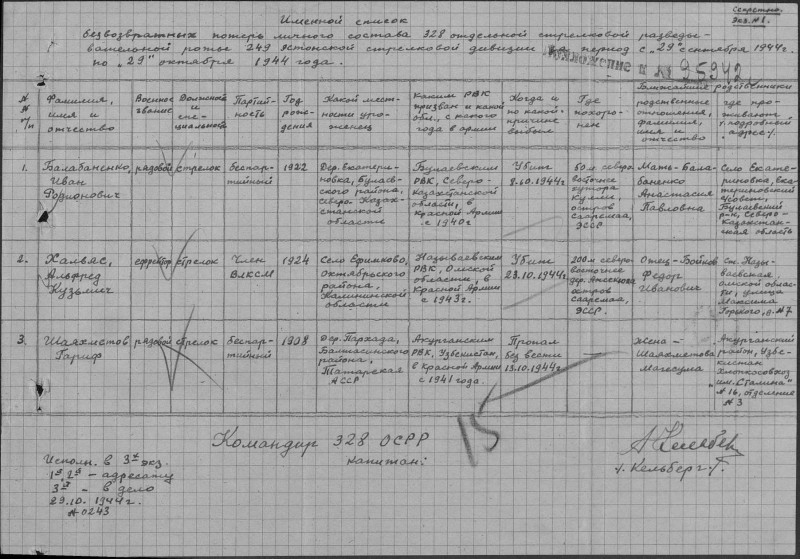 Секретно.
Экз. № 1.
Именной список
безвозвратных потерь личного состава 328 отдельной стрелковой разведы-
вательной роты 249 эстонской стрелковой дивизии за период с „29" сентября 1944г.
по „29" октября 1944 года.
№ 95942
№№ п/п
Фамилия, имя и отчество
Военное звание
Должность и специальность
Партийность
Год рождения
Какой местности уроженец
Каким РВК призван и какой обл., с какого года в армии
Когда и по какой причине выбыл
Где похоронен
Ближайшие родственники
родственные отношения, фамилия, имя и отчество
где проживают (подробный адрес)
1.
Балабаненко, Иван Родионович
рядовой
стрелок
беспартийный
1922
Дер. Екатериновка, Булаевского района, Северо-Казахстанской области
Булаевским РВК, Северо-Казахстанской области, в Красной Армии с 1940г
Убит 8.10.1944г.
50м северо-восточнее хутора
остров Сааремаа, ЭССР
Мать - Балабаненко Анастасия Павловна
Село Екатериновка, Екатериновский с/совет, Булаевский р-н, Северо-Казахстанская область
2.
Хальяс, Альфред Кузьмич
ефрейтор
стрелок
Член ВЛКСМ
1924
Село Ефимково, Октябрьского района, Калининской области
Называевским РВК, Омской области, в Красной Армии с 1943г.
Убит 23.10.1944г.
200м северо-восточнее дер.
остров Сааремаа, ЭССР.
Отец - Бойков Федор Иванович
ст. Называевская, Омской области, улица Максима Горького, д. №7
3.
Шаяхметов Гариф
рядовой
стрелок
беспартийный
1908
Дер. Пархада, Балтасинского района, Татарская АССР
Аккурганским РВК, Узбекистан, в Красной Армии с 1941 года.
Пропал без вести 13.10.1944г.
—
Жена - Шаяхметова Магесума
Аккурганский район, Узбекистан хлопкосовхоз им. „Сталина" №16, отделение №3
15
Командир 328 ОСРР
капитан:
/. Кельберг. /.
Исполн. в 3х экз.
1й, 2й - адресату
3й - в дело
29.10.1944г.
№ 0243